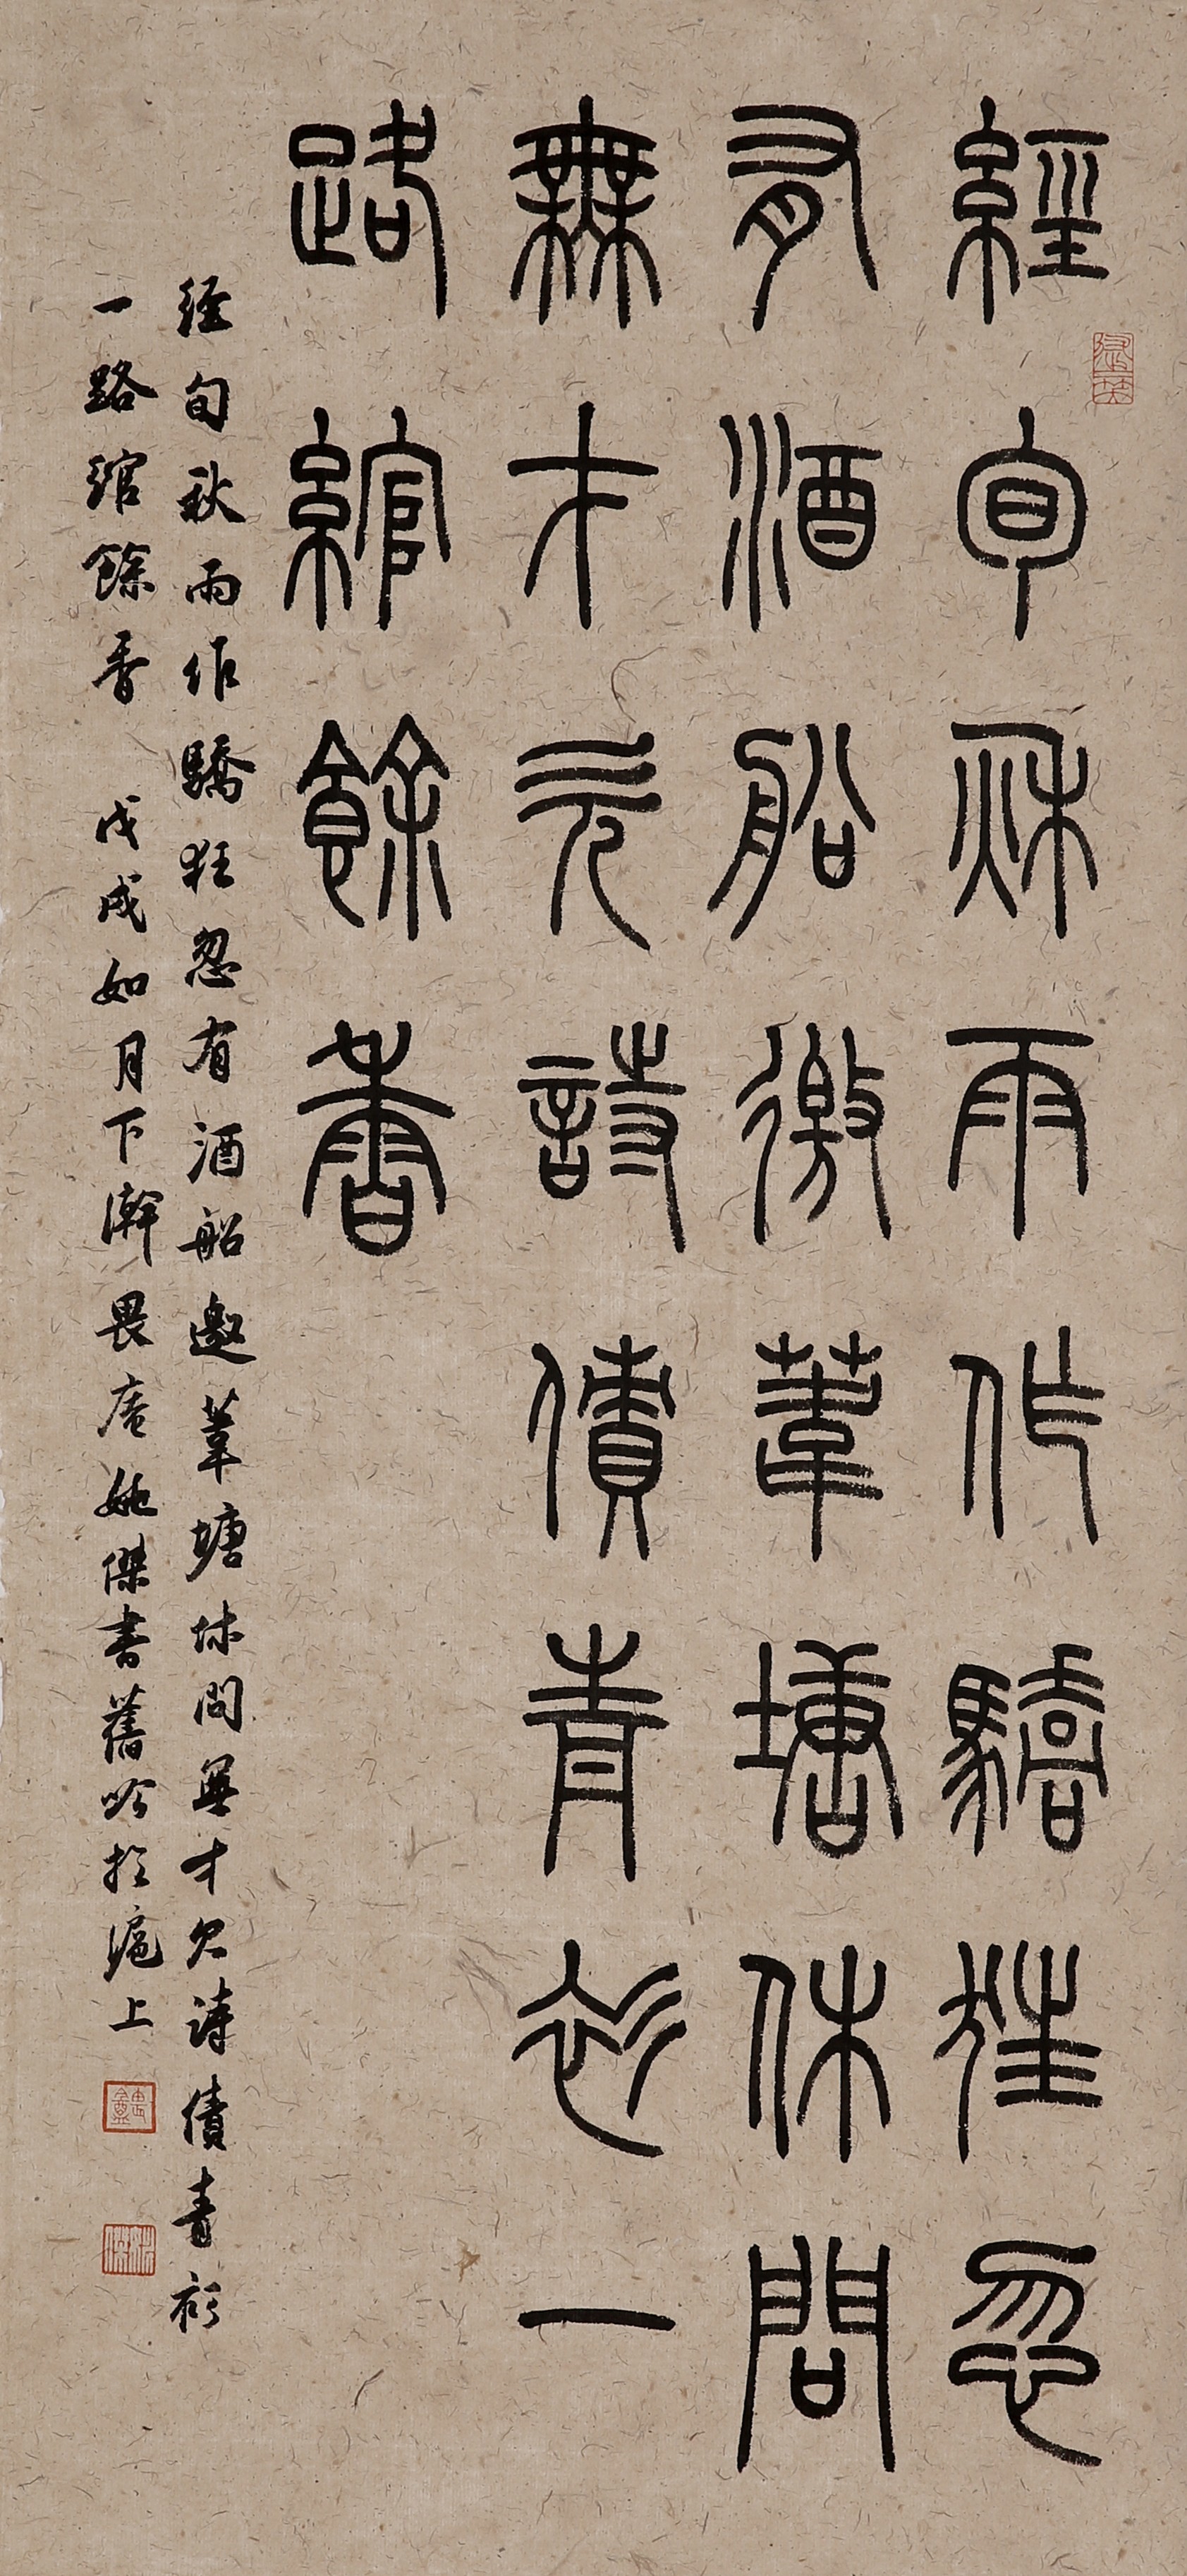 經旬秋雨作驕狂忽
有酒船邀葦塘休問
無才欠詩債青衫一
路綰餘香
经旬秋雨作驕狂忽有酒船邀葦塘休問無才欠詩債青衫
一路綰餘香 戊戌如月下澣畏庵姚傑書舊吟於滬上